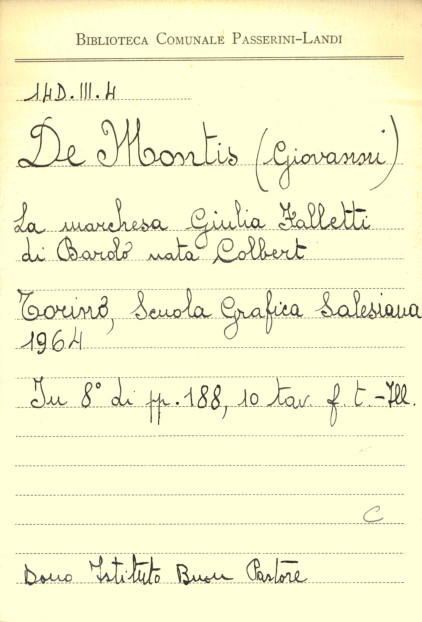 BIBLIOTECA COMUNALE PASSERINI-LANDI
14D.III.4
De Montis (Giovanni)
La marchesa Giulia Falletti
di Barolo nata Colbert
Torino, Scuola Grafica Salesiana
1964
In 8° di pp. 188, 10 tav. f. t. - Ill.
C
Dono Istituto Buon Pastore